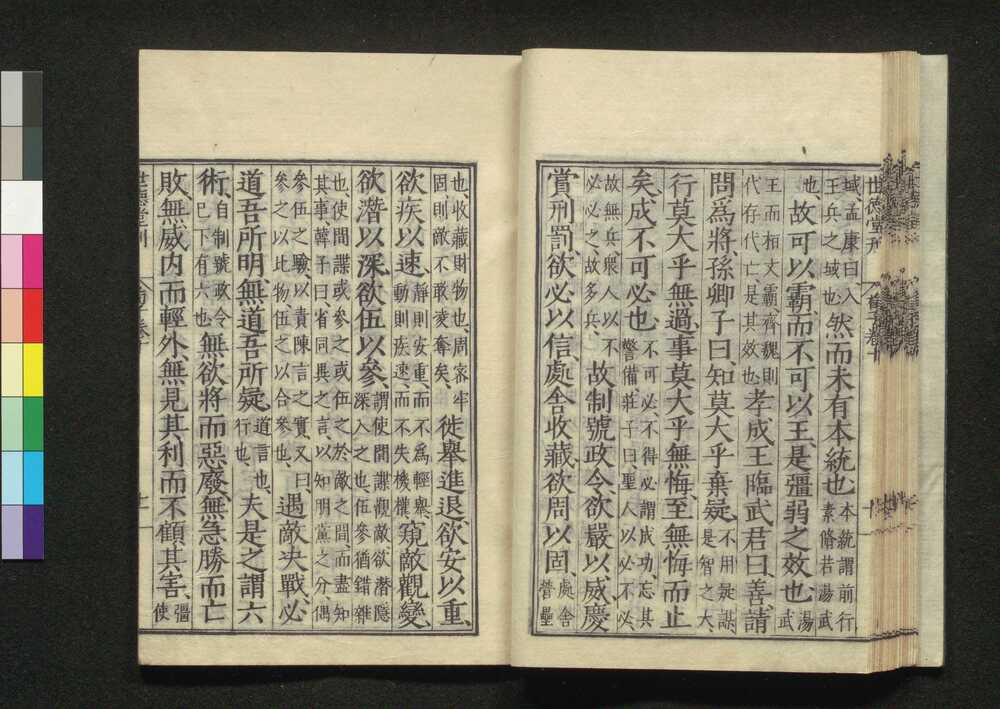 世德堂刊 荀子卷十 十
域孟康曰入王兵之域也然而未有本統也本統謂前行素脩若湯武
也故可以霸而不可以王是彊弱之效也湯武
王而桓文霸齊魏則代存代亡是其效也孝成王臨武君曰善請
問爲將孫卿子曰知莫大乎棄疑不用疑謀是智之大
行莫大乎無過事莫大乎無悔至無悔而止
矣成不可必也不可必不得必謂成功忘其警備莊子曰聖人以必不必
故無兵衆人以不必必之故多兵故制號政令欲嚴以威慶
賞刑罰欲必以信處舍收藏欲周以固處舍營壘
也收藏財物也周密牢固則敵不敢奪矣徙舉進退欲安以重
欲疾以速靜則安重而不爲輕舉動則疾速而不失機權窺敵觀變
欲潛以深欲伍以參謂使間諜觀敵欲潛隱深入之也伍參猶錯雜
也使間諜或參之或伍之於敵之間而盡知其事韓子曰省同異之言以知朋黨之分偶
參伍之驗以責陳言之實又曰參之以此物伍之以合參也遇敵决戰必
道吾所明無道吾所疑道言也行也夫是之謂六
術自制號政令已下有六也無欲將而惡廢無急勝而亡
敗無威內而輕外無見其利而不顧其害彊使